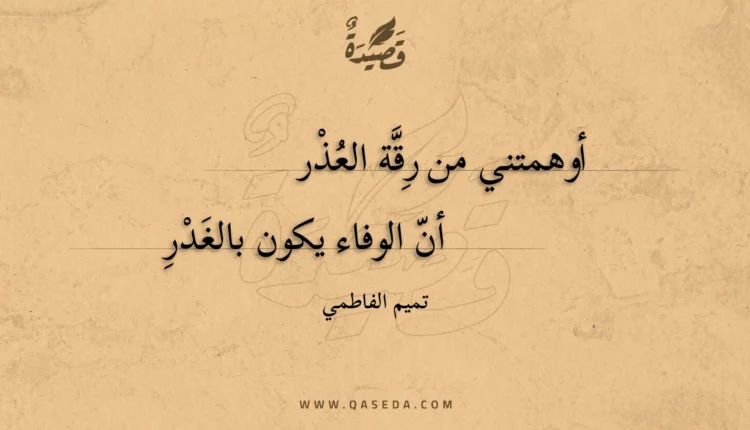 قَصِيْدَةٌ
أوهمتني من رِقَّة العُذْر
أنّ الوفاء يكون بالغَدْرِ
تميم الفاطمي
WWW.QASEDA.COM